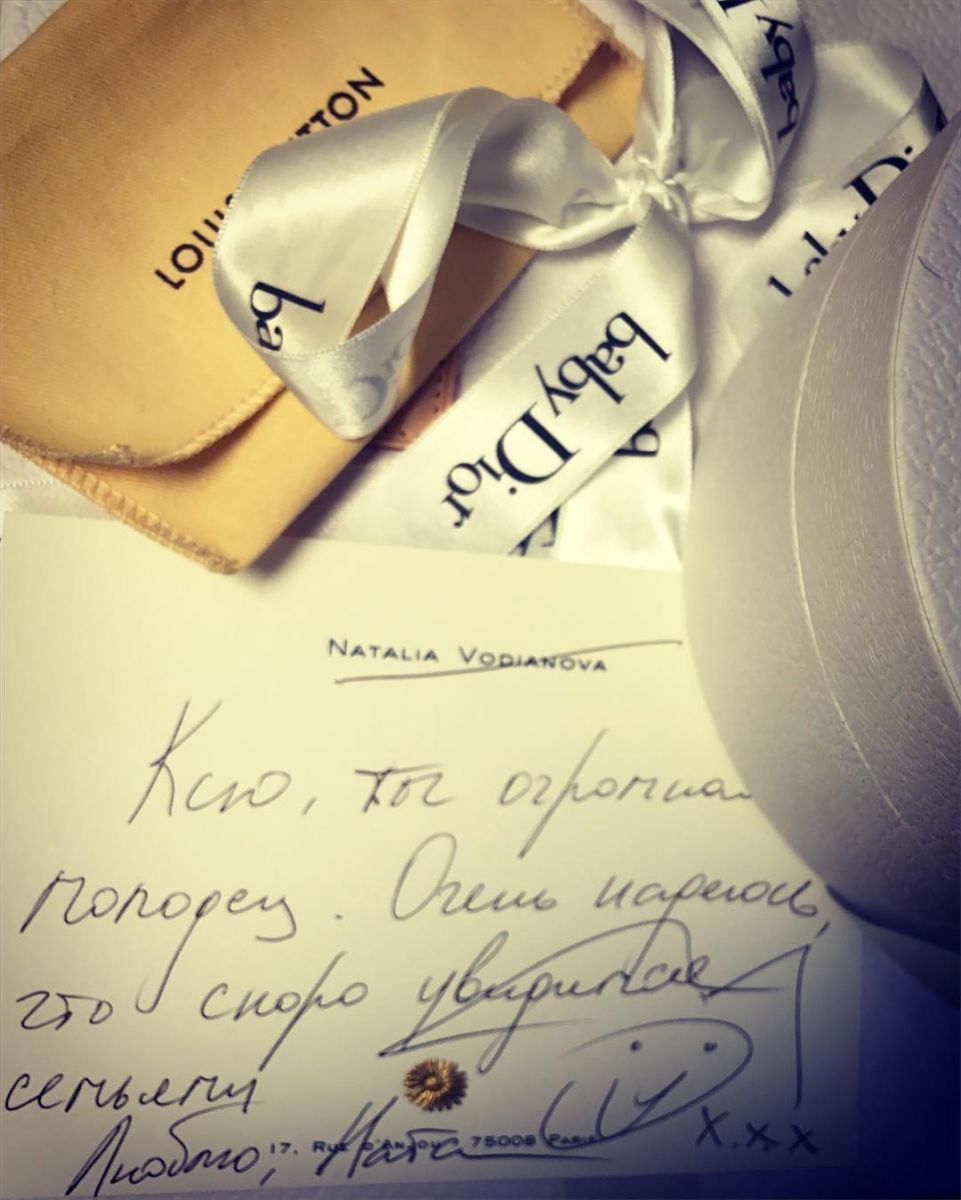 LOUIS VUITTON
ba
baby
baby Dior
NATALIA VODIANOVA
Ксю, ты огромная
молодец. Очень надеюсь,
что скоро увидимся
семьями
Люблю, Ната
17. RUE D'ANJOU 75008 PARIS
x.xx